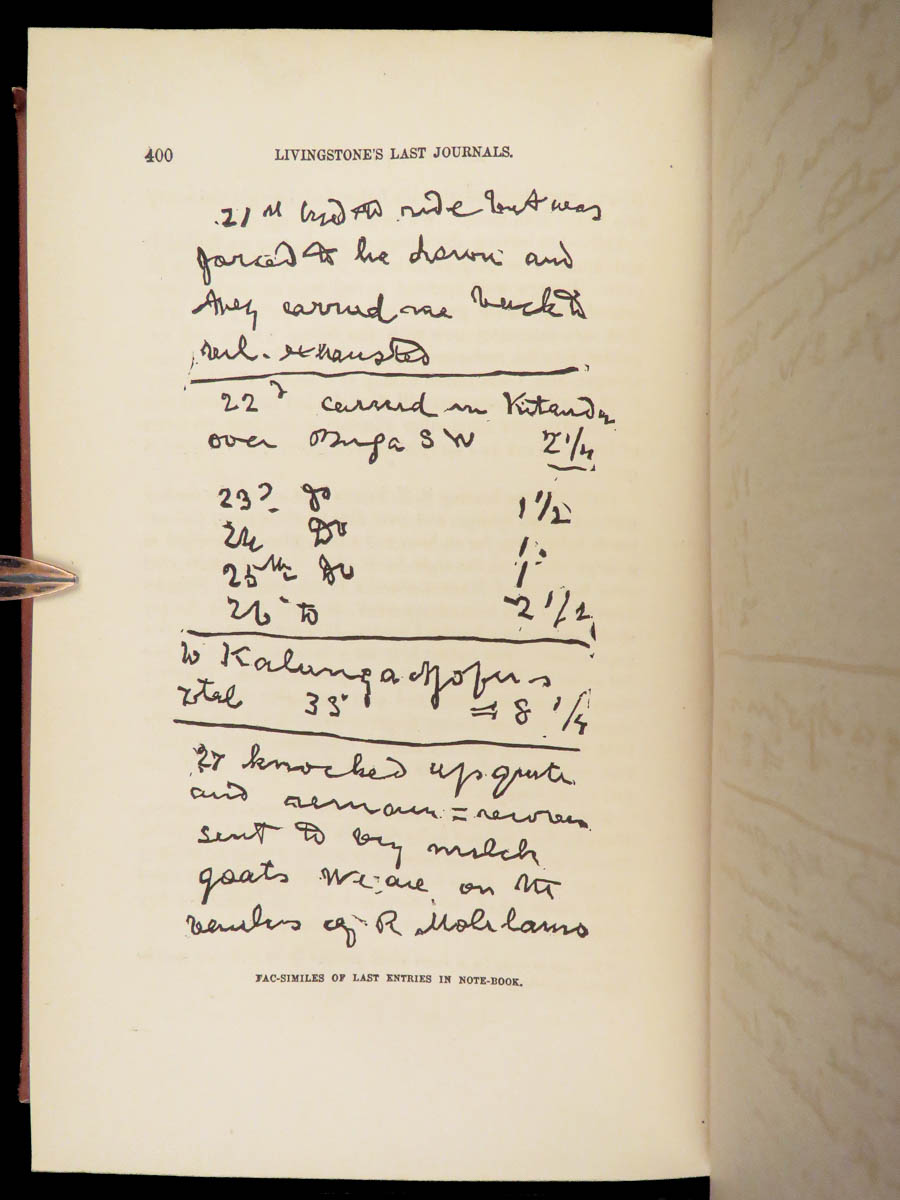 400 LIVINGSTONE'S LAST JOURNALS.
21st tried to ride but was
forced to lie down and
they carried me back to
vil. exhausted
22d carried in Kitanda
over Buga SW 2 1/4
23d do 1 1/2
24 Do 1
25th Do 1
26 to 2 1/2
to Kalunganjofu's
total 33 = 8 1/4
27 knocked up quite
and remain = recover
sent to buy milch
goats We are on the
banks of R Molilamo
FAC-SIMILES OF LAST ENTRIES IN NOTE-BOOK.